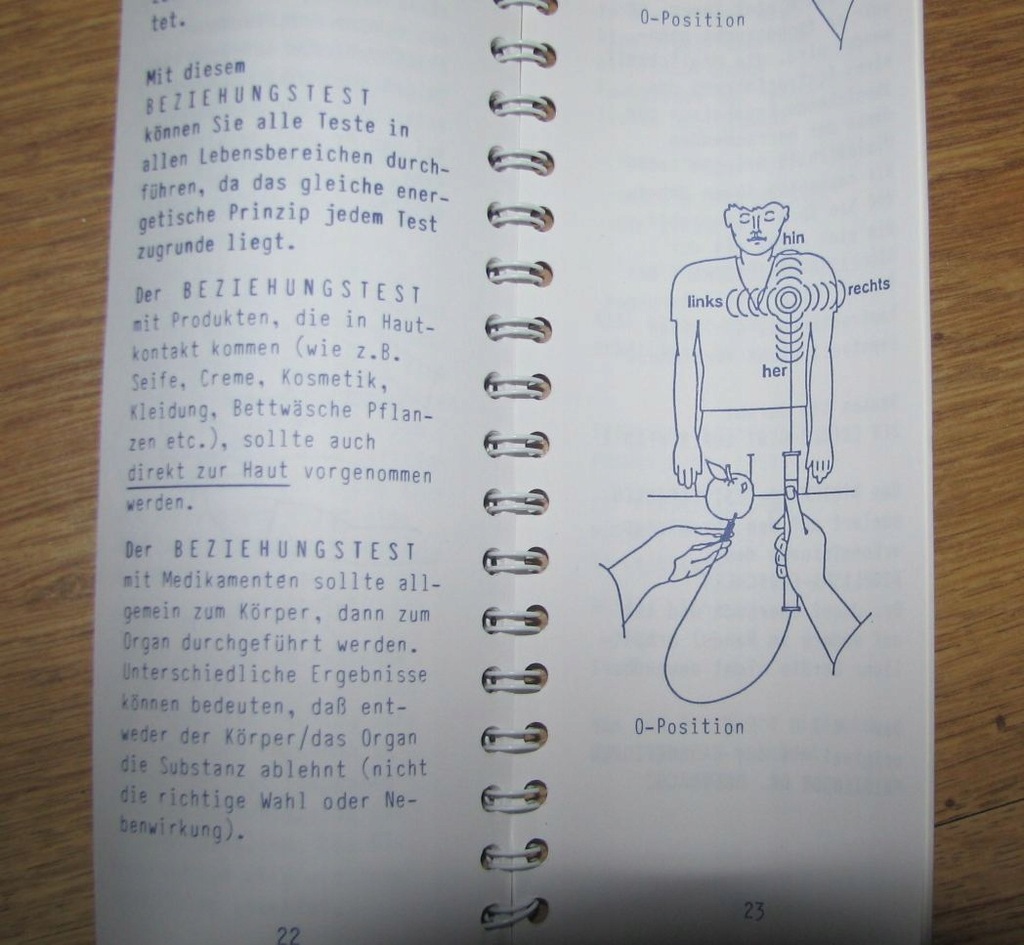 tet.
Mit diesem
BEZIEHUNGSTEST
können Sie alle Teste in
allen Lebensbereichen durch-
führen, da das gleiche ener-
getische Prinzip jedem Test
zugrunde liegt.
Der BEZIEHUNGSTEST
mit Produkten, die in Haut-
kontakt kommen (wie z.B.
Seife, Creme, Kosmetik,
Kleidung, Bettwäsche Pflan-
zen etc.), sollte auch
direkt zur Haut vorgenommen
werden.
Der BEZIEHUNGSTEST
mit Medikamenten sollte all-
gemein zum Körper, dann zum
Organ durchgeführt werden.
Unterschiedliche Ergebnisse
können bedeuten, daß ent-
weder der Körper/das Organ
die Substanz ablehnt (nicht
die richtige Wahl oder Ne-
benwirkung).
22
O-Position
hin
links
rechts
her
O-Position
23